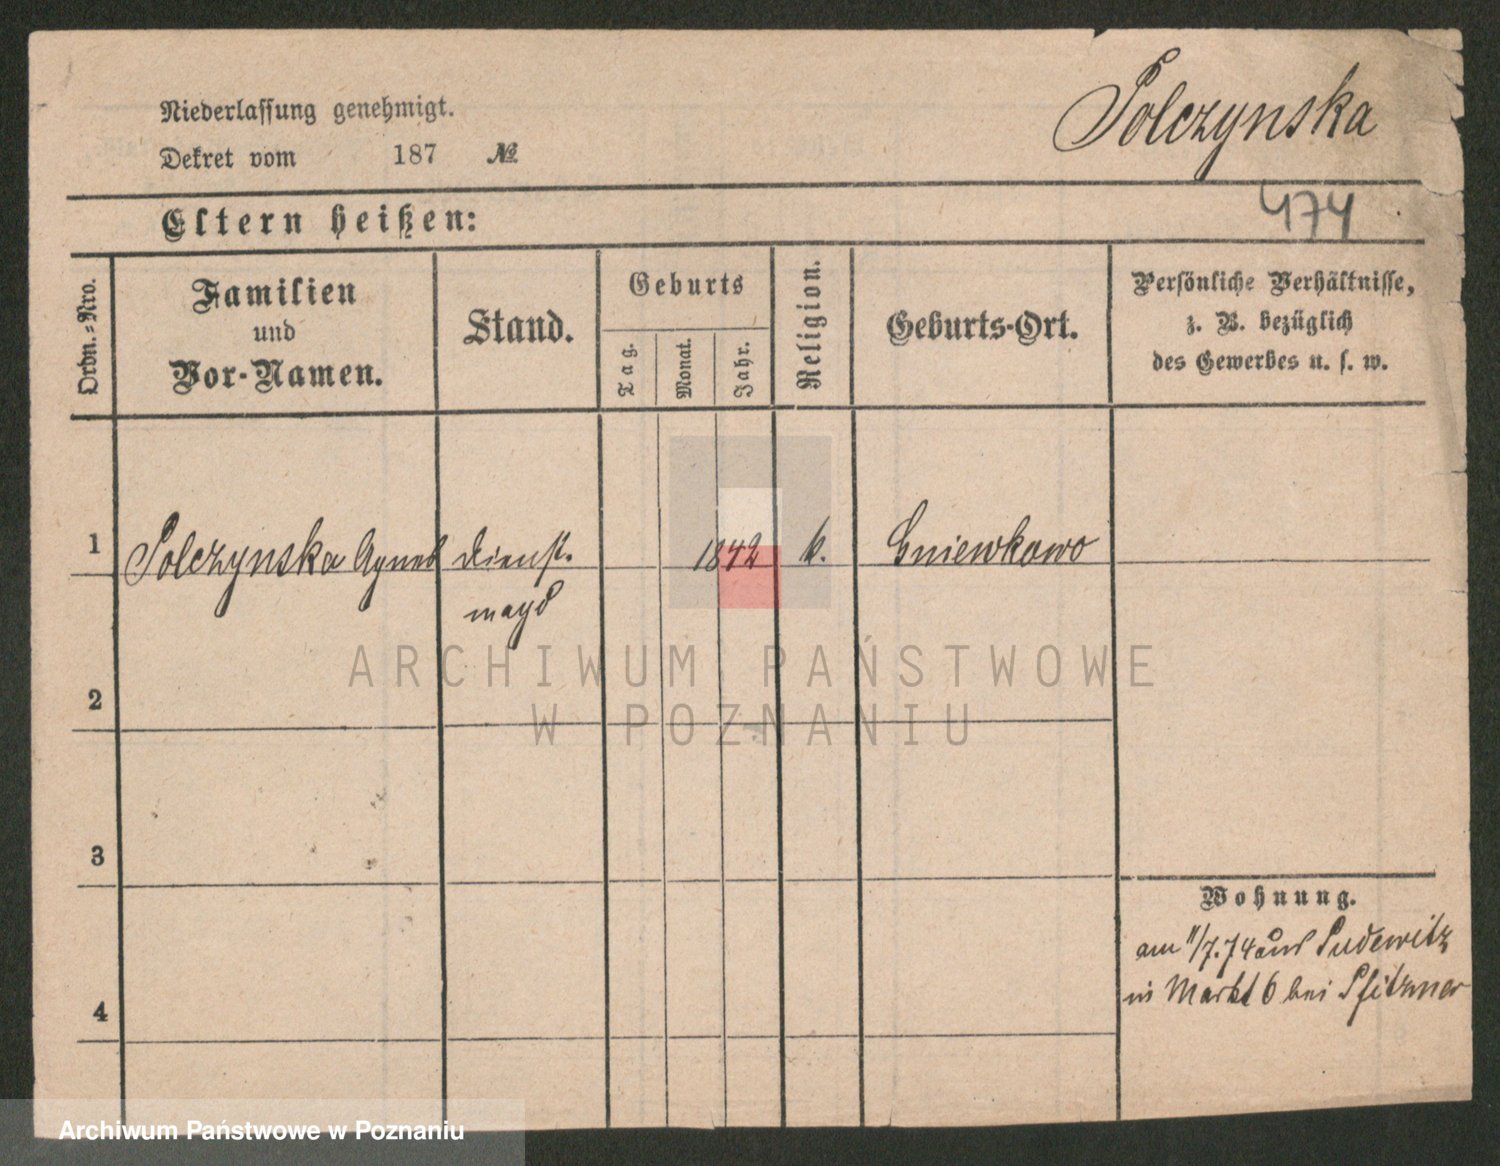 Polczynska
Niederlassung genehmigt.
Dekret vom 187 №
474
Eltern heißen:
Ordn.-Nro.
Familien
und
Vor-Namen.
Stand.
Geburts
Tag.
Monat.
Jahr.
Religion.
Geburts-Ort.
Persönliche Verhältnisse,
z. B. bezüglich
des Gewerbes u. s. w.
1 Polczynska Agnes Dienst- 1842 k. Gniewkowo
magd
ARCHIWUM PAŃSTWOWE
W POZNANIU
2
3
Wohnung.
am 11/7.74 aus Pudewitz
in Markt 6 bei Pfitzner
4
Archiwum Państwowe w Poznaniu